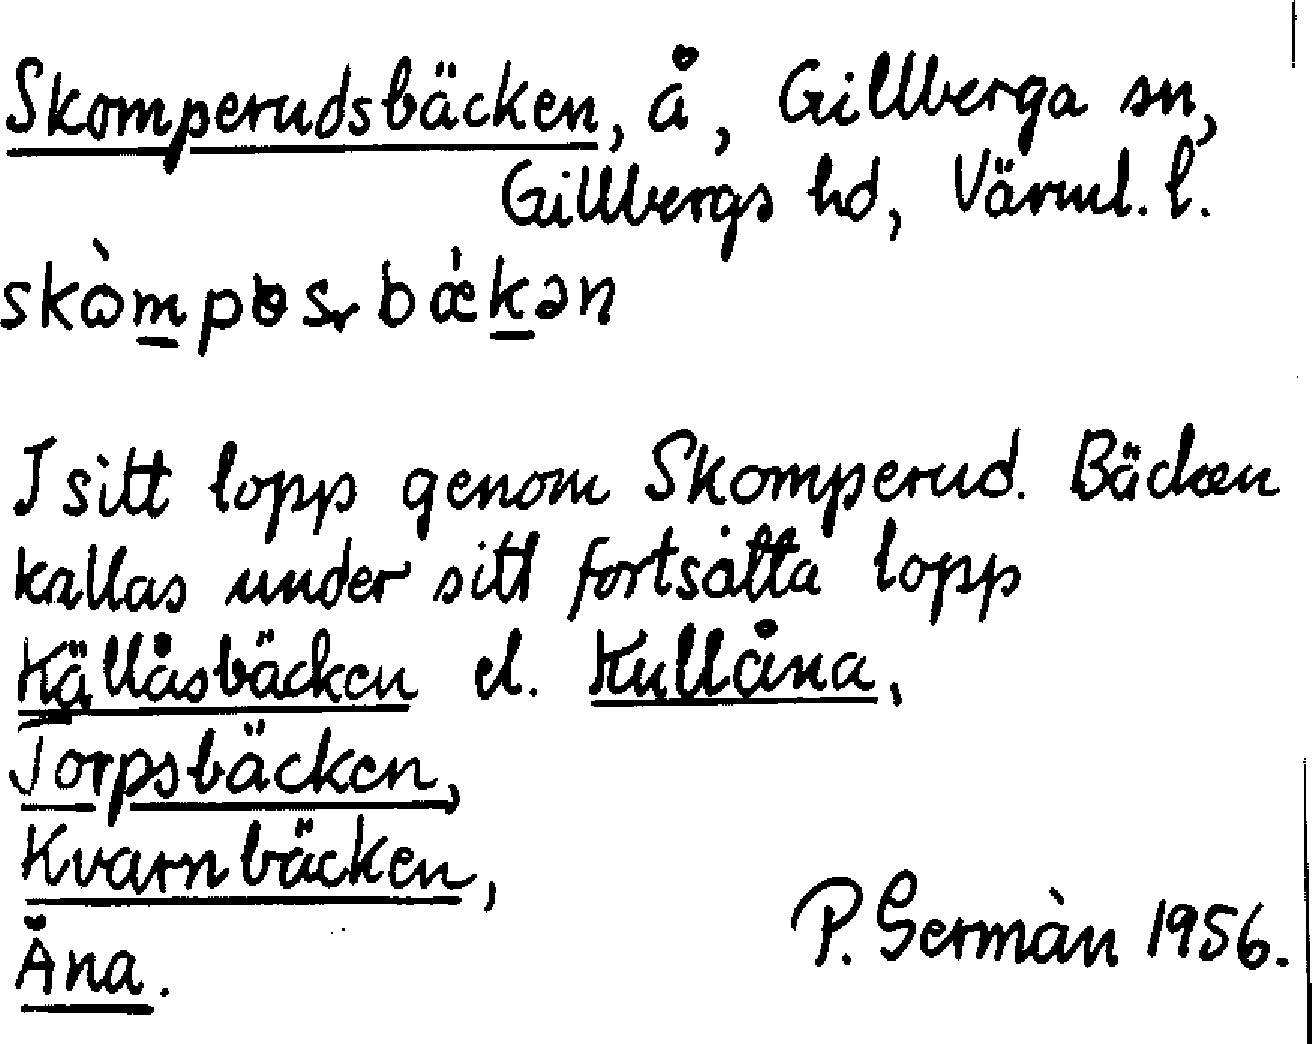 Skomperudsbäcken, å, Gillberga sn,
Gillbergs hd, Värml. l.
I sitt lopp genom Skomperud. Bäcken
kallas under sitt fortsätta lopp
Källåsbäcken el. Kullåna,
Torpsbäcken,
Kvarnbäcken,
Åna.
P. Sermàn 1956.